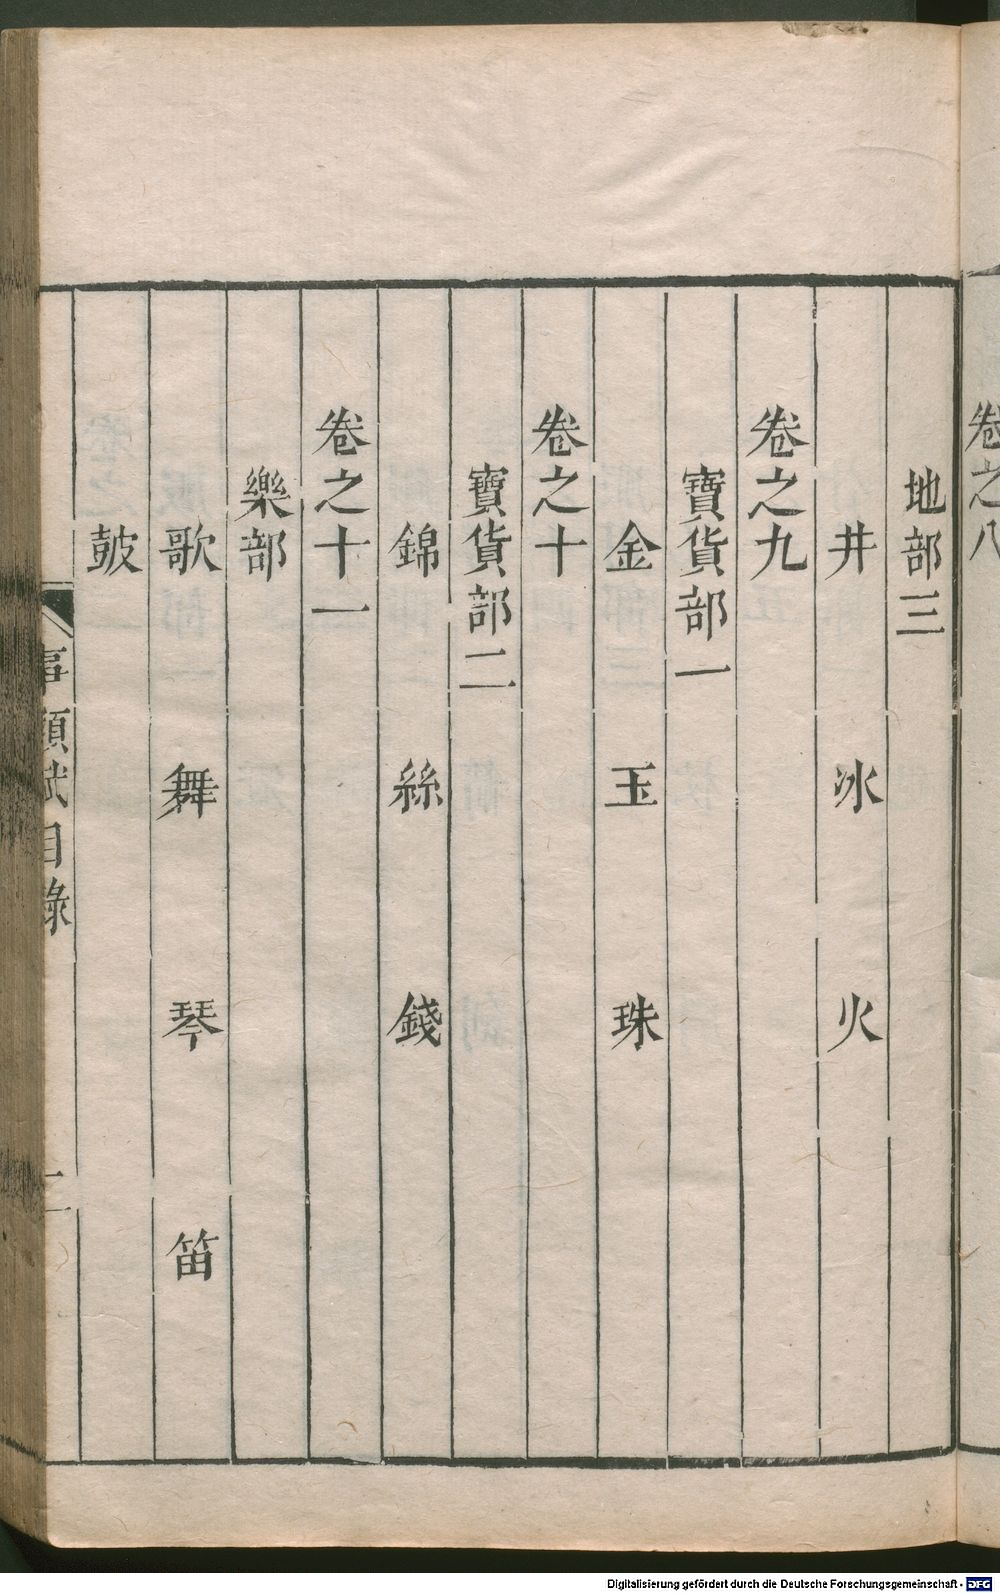 卷之八
地部三
井 冰 火
卷之九
寶貨部一
金 玉 珠
卷之十
寶貨部二
錦 絲 錢
卷之十一
樂部
歌 舞 琴 笛
皷
事類賦目錄
二
Digitalisierung gefördert durch die Deutsche Forschungsgemeinschaft - DFG